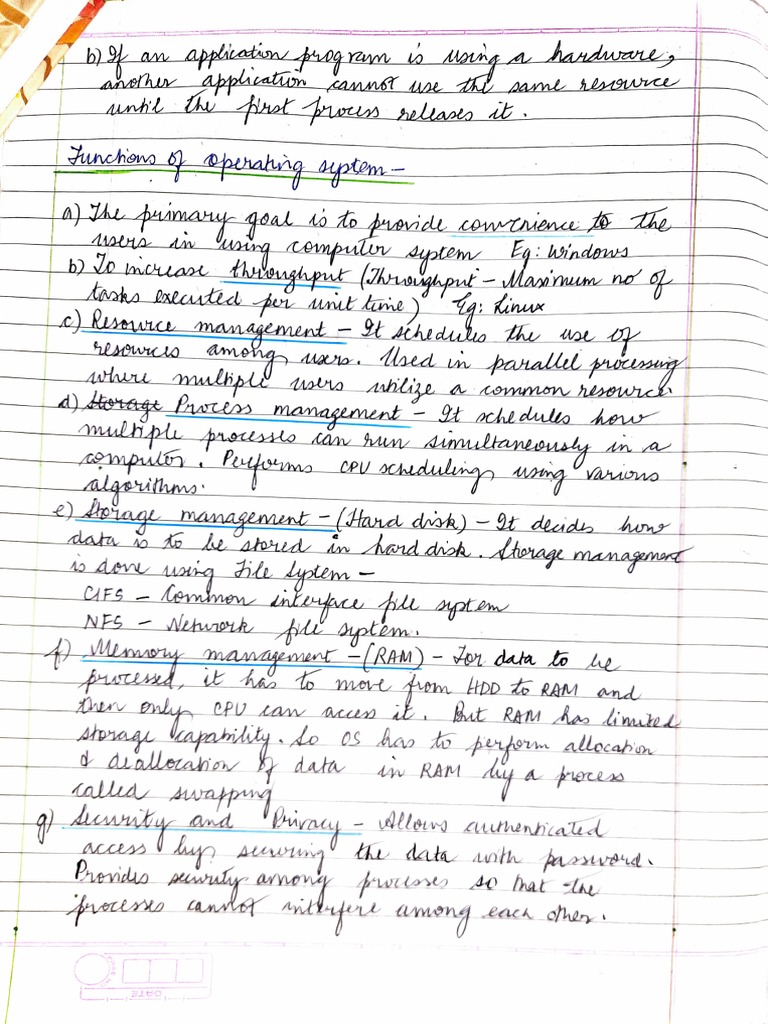 b) If an application program is using a hardware,
another application cannot use the same resource
until the first process releases it.
Functions of operating system –
a) The primary goal is to provide convenience to the
users in using computer system Eg: Windows
b) To increase throughput (Throughput – Maximum no of
tasks executed per unit time) Eg: Linux
c) Resource management – It schedules the use of
resources among users. Used in parallel processing
where multiple users utilize a common resource.
d) Storage Process management – It schedules how
multiple processes can run simultaneously in a
computer. Performs CPU scheduling using various
algorithms.
e) Storage management – (Hard disk) – It decides how
data is to be stored in hard disk. Storage management
is done using File System –
CIFS – Common interface file system
NFS – Network file system.
f) Memory management – (RAM) – For data to be
processed, it has to move from HDD to RAM and
then only CPU can access it. But RAM has limited
storage capability. So OS has to perform allocation
& deallocation of data in RAM by a process
called swapping
g) Security and Privacy – Allows authenticated
access by securing the data with password.
Provides security among processes so that the
processes cannot interfere among each other.
DATE